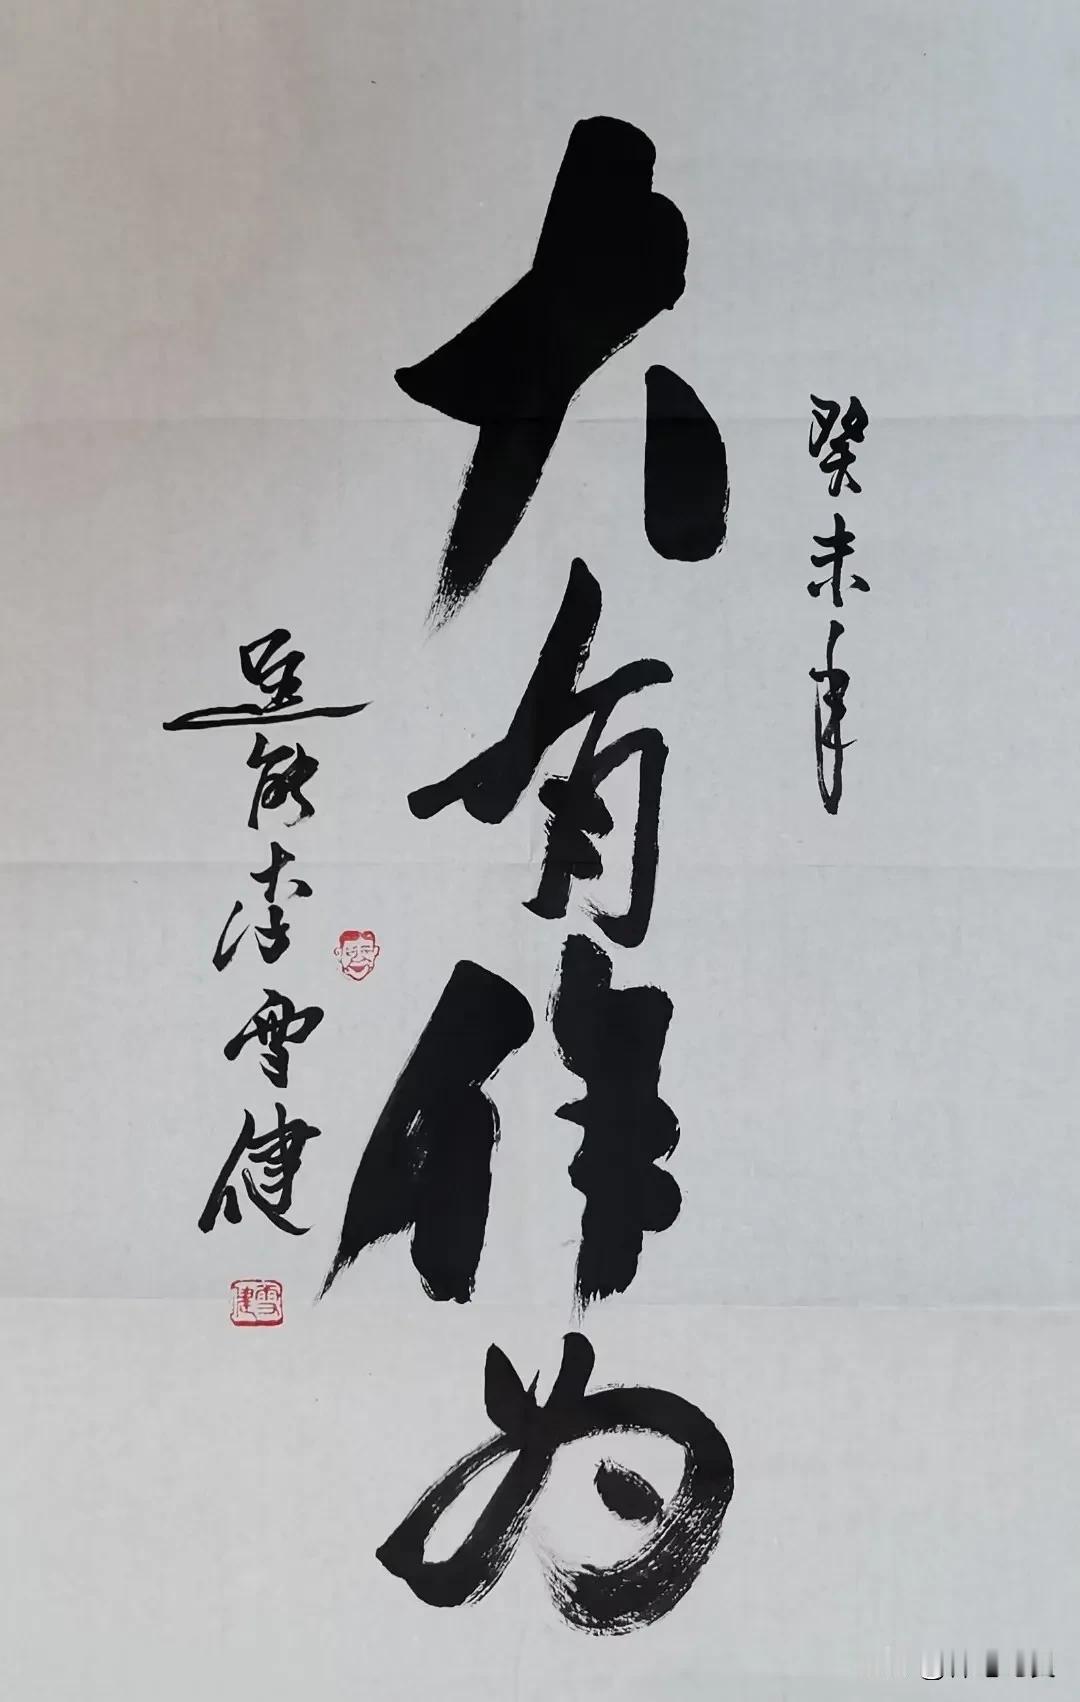 癸未年
大有作为
李雪健
雪健